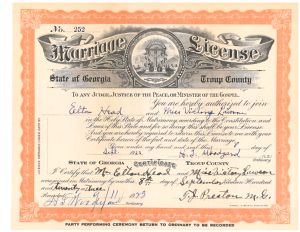 No. 252
Marriage License
State of Georgia Troup County
TO ANY JUDGE, JUSTICE OF THE PEACE, OR MINISTER OF THE GOSPEL.
You are hereby authorized to join
Elton Head and Miss
in the Holy State of Matrimony, according to the Constitution and
Laws of this State and for so doing this shall be your License.
And you are hereby required to return this License to me with your
Certificate of the fact and date of the Marriage.
Given under my hand and seal this day of
STATE OF GEORGIA Certificate TROUP COUNTY
I Certify that Mr Elton Head and Miss
were joined in Matrimony by me this 8th day of
September Nineteen Hundred
Twenty three
T.J. Preston M.G.
PARTY PERFORMING CEREMONY RETURN TO ORDINARY TO BE RECORDED